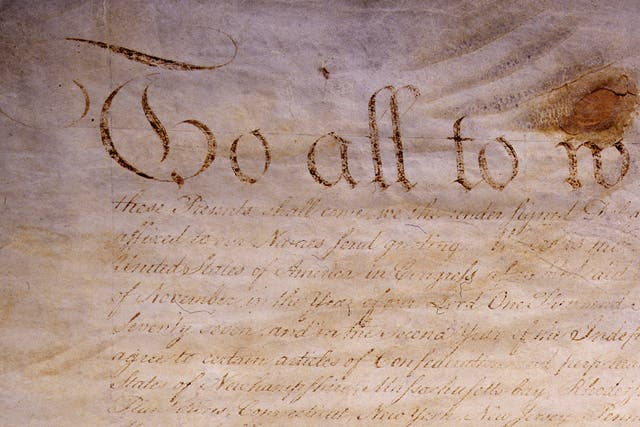 To all to w
these Presents shall come, we the under signed D
affixed to our Names send greeting.
United States of America in Congress assembled did
of November in the Year of our Lord One Thousand
Seventy seven, and in the Second Year of the Indep
agree to certain articles of Confederation and perpetual
States of Newhampshire, Massachusetts bay, Rhode
Connecticut, New York, New Jersey, Penn